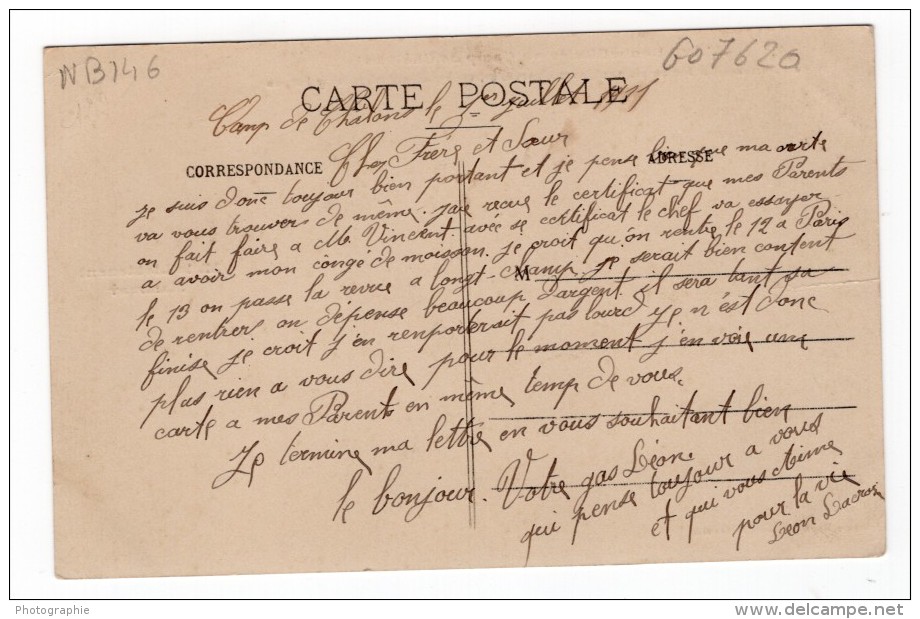 NB146
607620
CARTE POSTALE
Camp de Chalons le 1er juillet
CORRESPONDANCE
ADRESSE
Cher Frère et Sœur
je suis donc toujour bien portant et je pense bien que ma carte
va vous trouver de même. jae recue le certificat que mes Parents
on fait faire a Mr Vincent. avée se certificat le chef va essayer
a avoir mon congé de moisson. je croit qu'on rentre le 12 a Paris
le 13 on passe la revue a longt-champ. je serait bien content
M
de rentrer on dépense beaucoup d'argent il sera tant sa
finise je croit j'en renporterait pas lourd je n'est donc
plus rien a vous dire pour le moment j'en voie une
carte a mes Parents en même temp de vous.
Je termine ma lettre en vous souhaitant bien
le bonjour. Votre gas Léon.
qui pense toujour a vous
et qui vous Aime
pour la vie
Léon
Photographie
www.delcampe.net